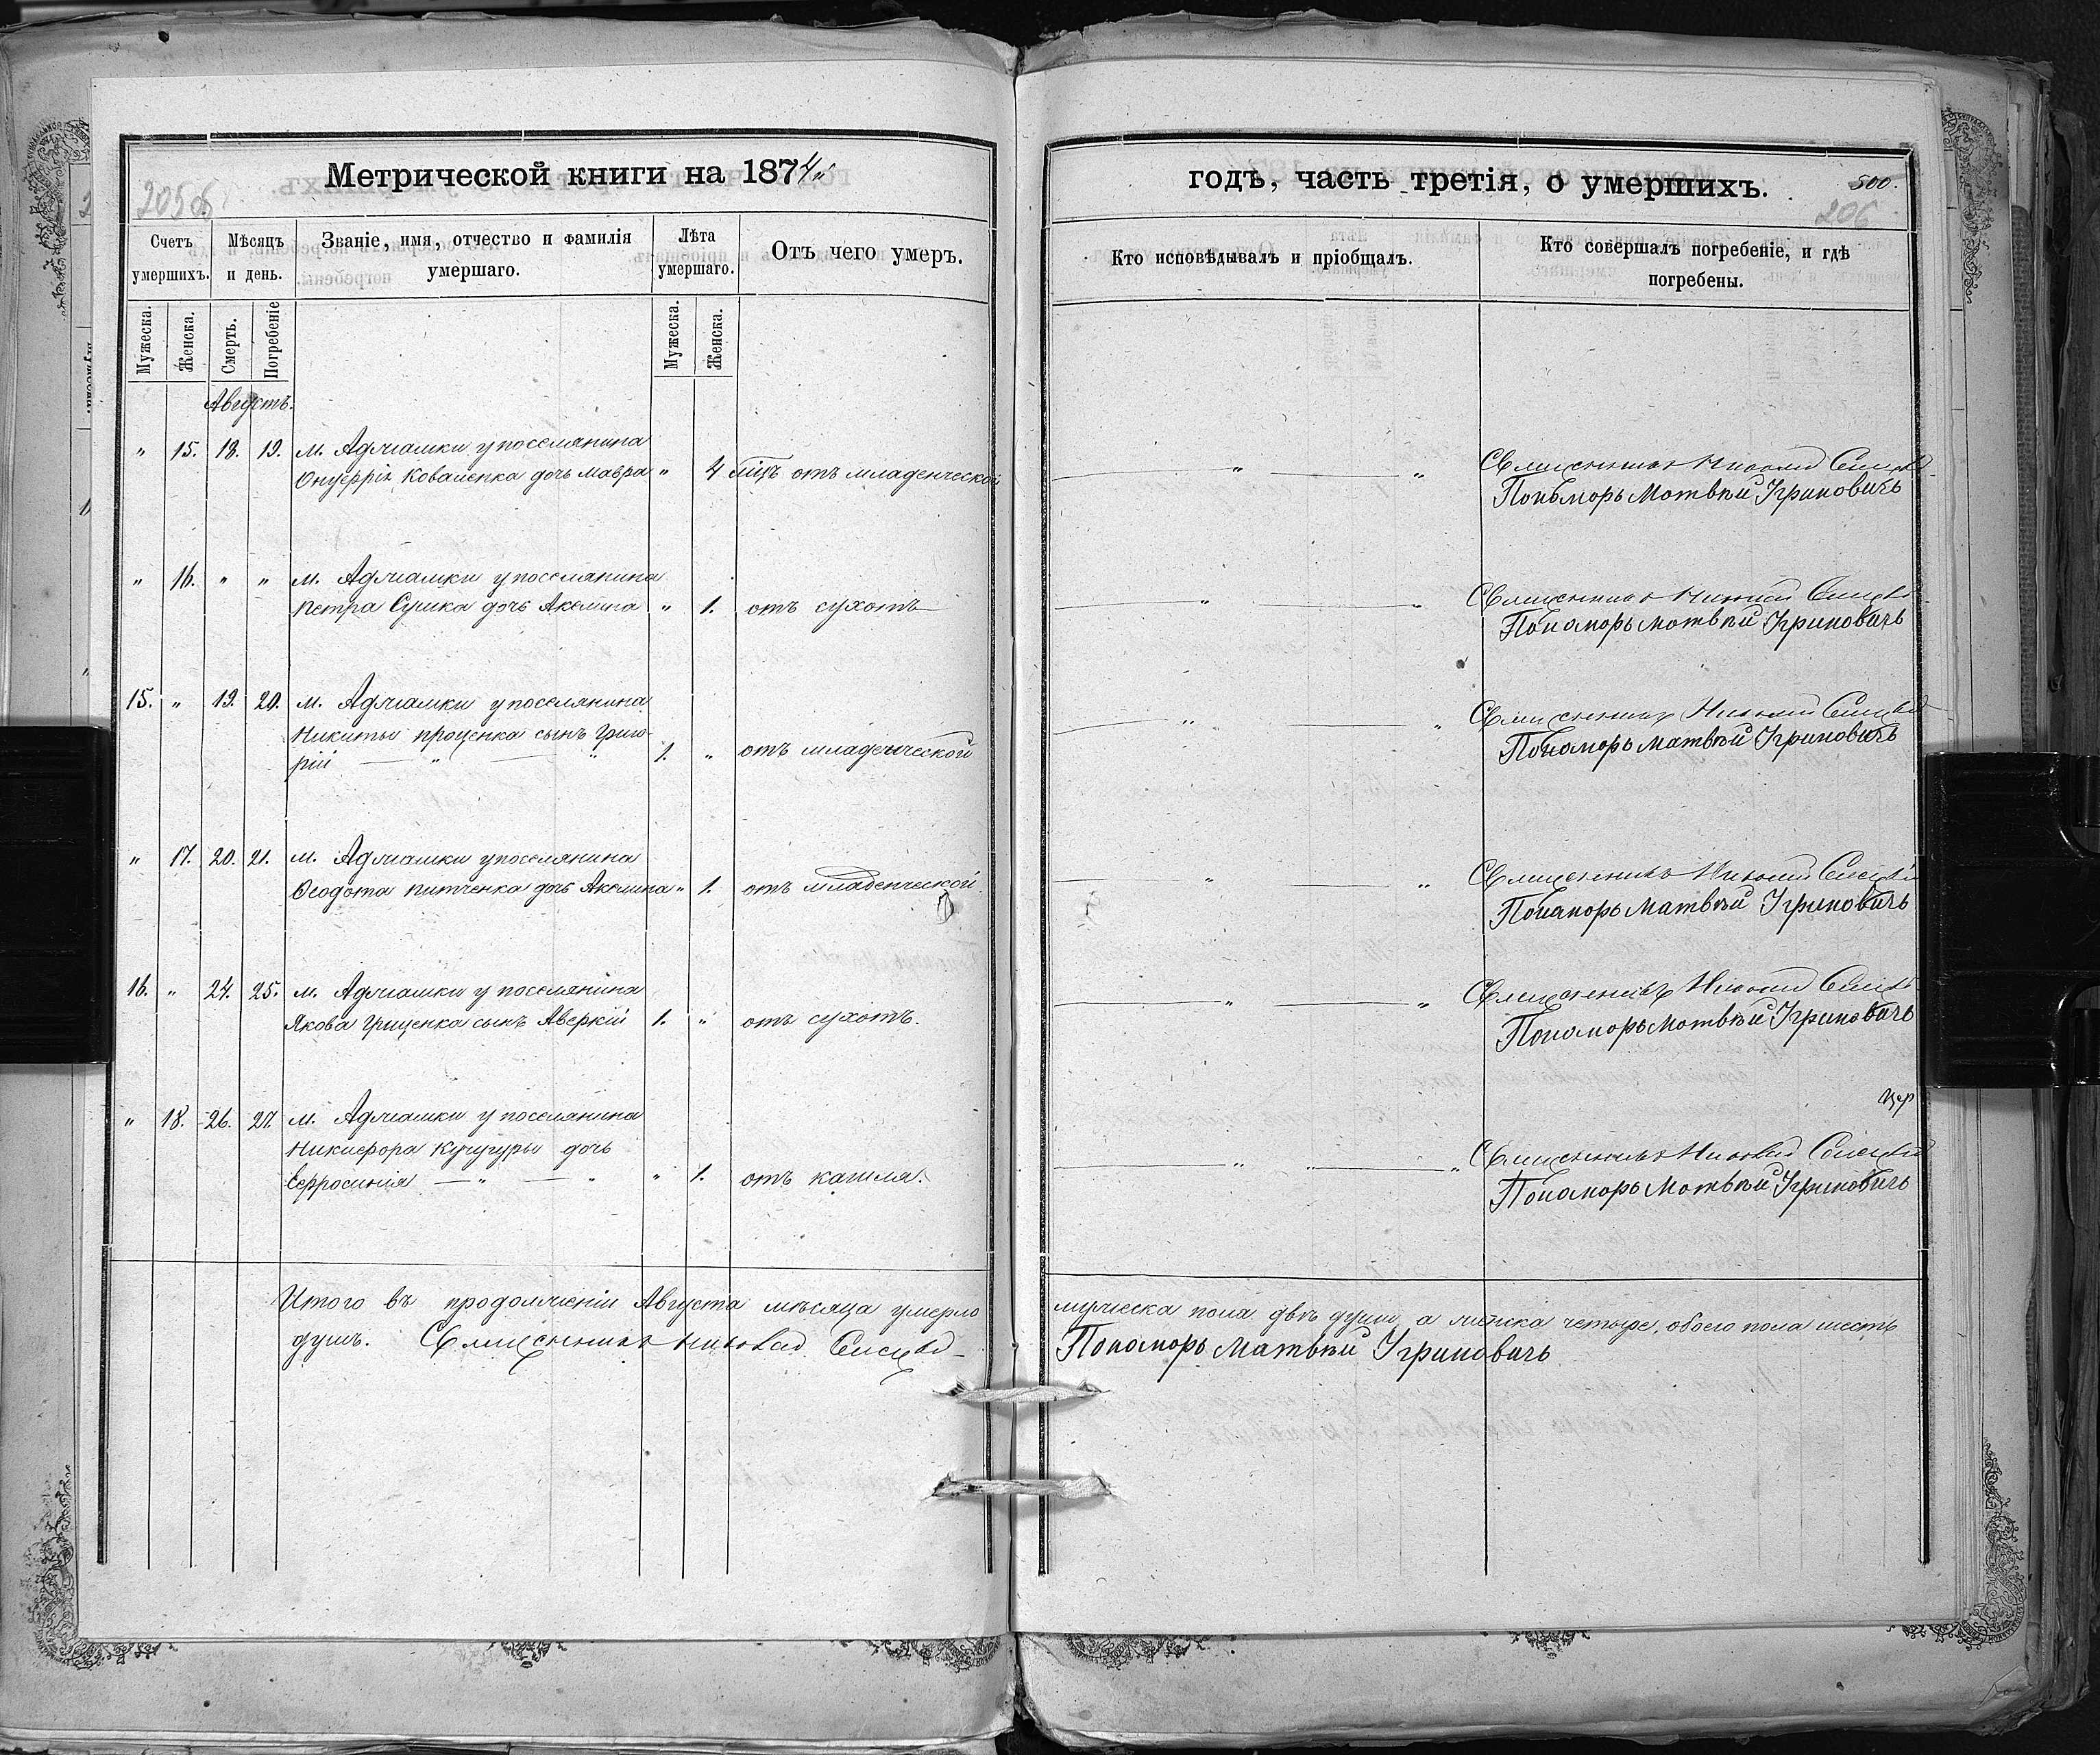 Метрической книги на 1874
205 б
Счетъ умершихъ.
Мѣсяцъ и день.
Званіе, имя, отчество и фамилія умершаго.
Лѣта умершаго.
Отъ чего умеръ.
Мужеска.
Женска.
Смерть.
Погребеніе
Мужеска.
Женска.
Августъ.
" 15. 18. 19. м. Аджамки у поселянина
Онуфрія Коваленка дочь Мавра " 4 мѣц отъ младенческой
" 16. " " м. Аджамки у поселянина
Петра Сушка дочь Акилина " 1. отъ сухотъ
15. " 19. 20. м. Аджамки у поселянина
Никиты Проценка сынъ Григо-
рій — " — " 1. " отъ младенческой
" 17. 20. 21. м. Аджамки у поселянина
Ѳеодота дочь Акилина " 1. отъ младенческой
16. " 24. 25. м. Аджамки у поселянина
Якова Гриценка сынъ Аверкій 1. " отъ сухотъ.
" 18. 26. 27. м. Аджамки у поселянина
Никифора Кучугуры дочь
Евфросинія — " — " " 1. отъ кашля.
Итого въ продолженіи Августа мѣсяца умерло
душъ. Священникъ Николай
годъ, часть третія, о умершихъ.
500.
206
Кто исповѣдывалъ и пріобщалъ.
Кто совершалъ погребеніе, и гдѣ погребены.
— " — " Священникъ Николай
Пономарь Матвѣй Угриновичъ
— " — " Священникъ Николай
Пономарь Матвѣй Угриновичъ
— " — " Священникъ Николай
Пономарь Матвѣй Угриновичъ
— " — " Священникъ Николай
Пономарь Матвѣй Угриновичъ
— " — " Священникъ Николай
Пономарь Матвѣй Угриновичъ
— " " — " Священникъ Николай
Пономарь Матвѣй Угриновичъ
мужеска пола двѣ души, а женска четыре, обоего пола шесть
Пономарь Матвѣй Угриновичъ